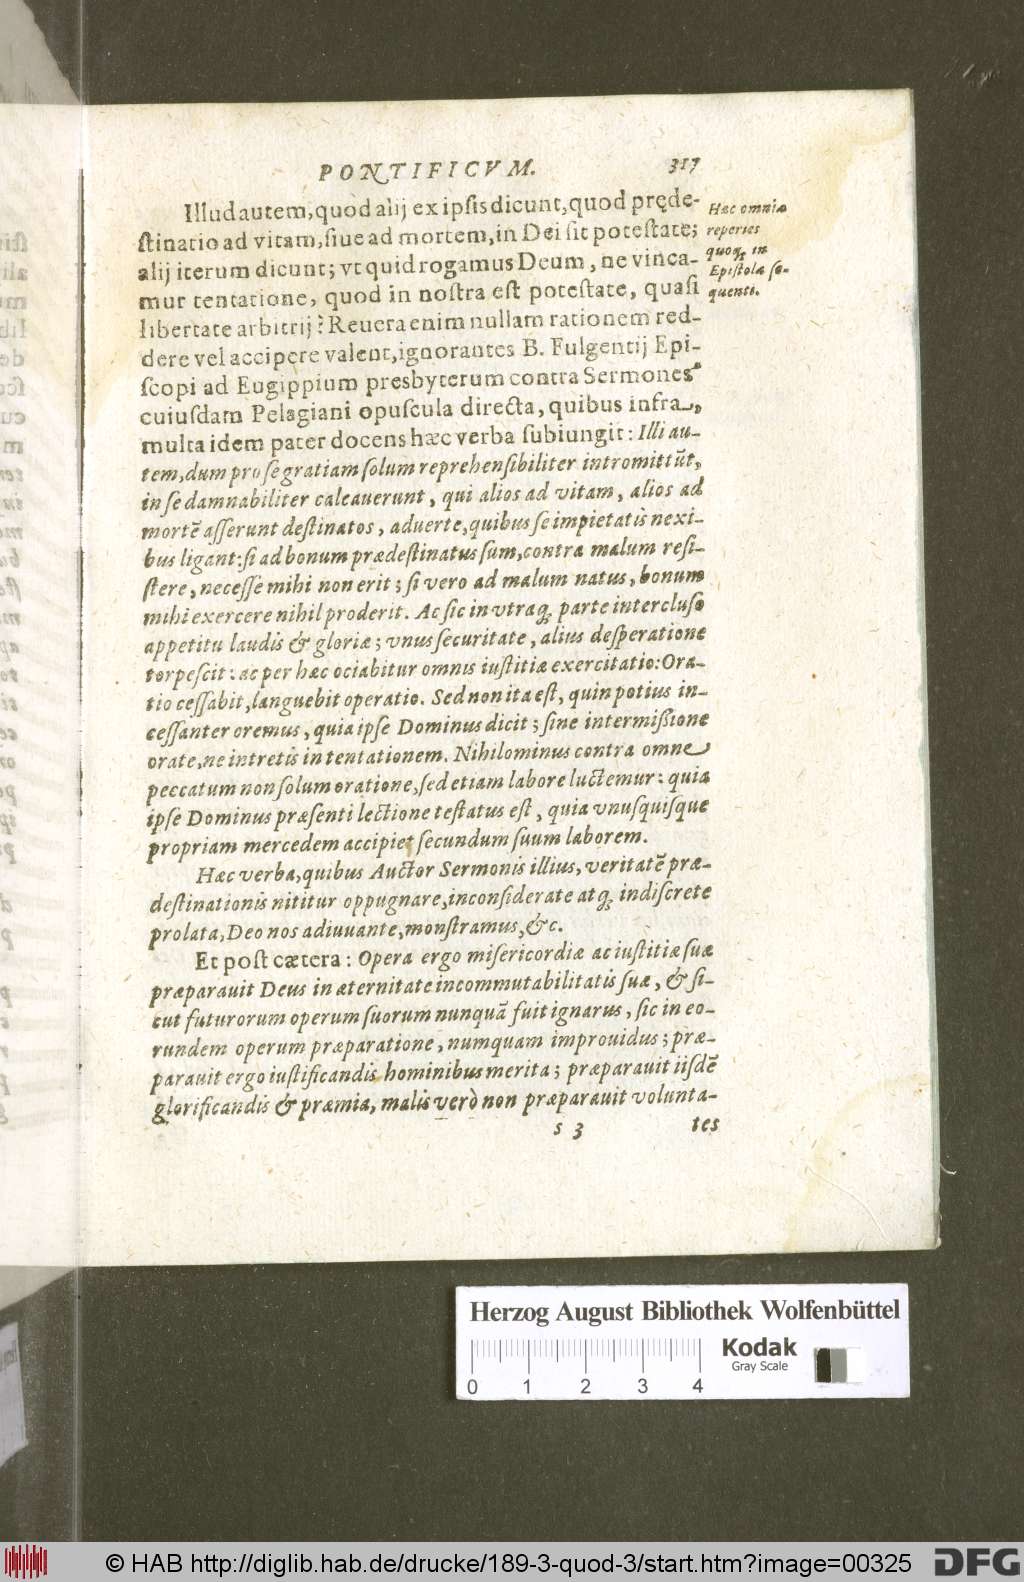 PONTIFICVM. 317
Illud autem, quod alij ex ipsis dicunt, quod pręde-
stinatio ad vitam, siue ad mortem, in Dei sit potestate;
alij iterum dicunt; vt quid rogamus Deum, ne vinca-
mur tentatione, quod in nostra est potestate, quasi
libertate arbitrij? Reuera enim nullam rationem red-
dere vel accipere valent, ignorantes B. Fulgentij Epi-
scopi ad Eugippium presbyterum contra Sermones
cuiusdam Pelagiani opuscula directa, quibus infra,
multa idem pater docens hæc verba subiungit: Illi au-
tem, dum pro se gratiam solum reprehensibiliter intromittũt,
in se damnabiliter calcauerunt, qui alios ad vitam, alios ad
mortẽ asserunt destinatos, aduerte, quibus se impietatis nexi-
bus ligant: si ad bonum prædestinatus sum, contra malum resi-
stere, necesse mihi non erit; si vero ad malum natus, bonum
mihi exercere nihil proderit. Ac sic in vtraq; parte intercluso
appetitu laudis & gloriæ; vnus securitate, alius desperatione
torpescit: ac per hæc ociabitur omnis iustitiæ exercitatio: Ora-
tio cessabit, languebit operatio. Sed non ita est, quin potius in-
cessanter oremus, quia ipse Dominus dicit; sine intermißione
orate, ne intretis in tentationem. Nihilominus contra omne
peccatum non solum oratione, sed etiam labore luctemur: quia
ipse Dominus præsenti lectione testatus est, quia vnusquisque
propriam mercedem accipiet secundum suum laborem.
Hæc verba, quibus Auctor Sermonis illius, veritatẽ præ-
destinationis nititur oppugnare, inconsiderate atq; indiscrete
prolata, Deo nos adiuuante, monstramus, &c.
Et post cætera: Opera ergo misericordiæ ac iustitiæ suæ
præparauit Deus in æternitate incommutabilitatis suæ, & si-
cut futurorum operum suorum nunquã fuit ignarus, sic in eo-
rundem operum præparatione, numquam improuidus; præ-
parauit ergo iustificandis hominibus merita; præparauit iisdẽ
glorificandis & præmia, malis verò non præparauit volunta-
s 3 tes
Hæc omnia
reperies
quoq; in
Epistola se-
quenti.
Herzog August Bibliothek Wolfenbüttel
Kodak
Gray Scale
0 1 2 3 4
© HAB http://diglib.hab.de/drucke/189-3-quod-3/start.htm?image=00325
DFG